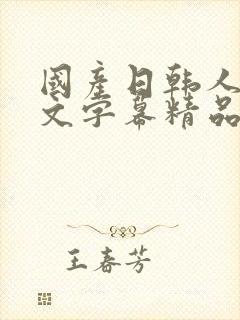 國產日韩人
文字幕精品
王春芳